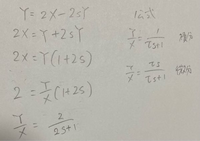 Y = 2X - 2sY
2X = Y + 2sY
2X = Y(1+2s)
2 = Y/X (1+2s)
Y/X = 2/(2s+1)
公式
Y/X = 1/(τs+1) 積分
Y/X = τs/(τs+1) 微分